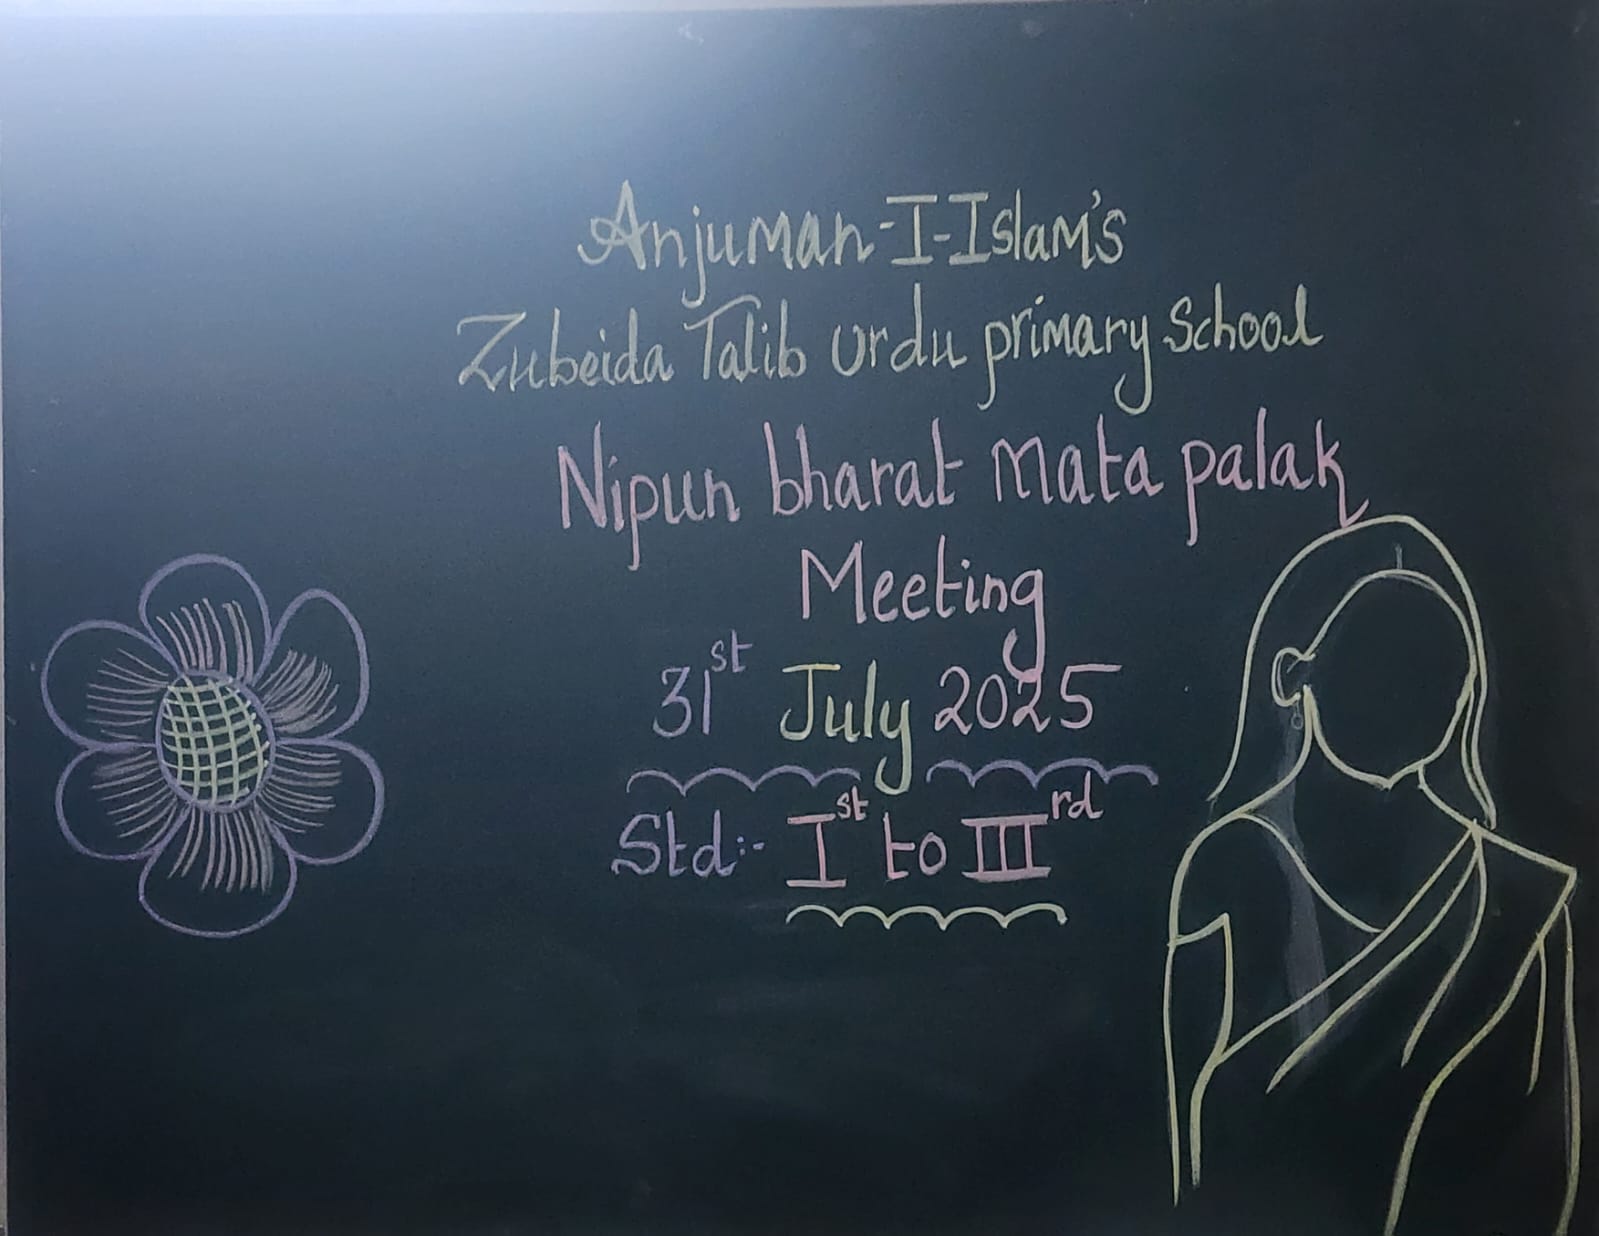 Anjuman-I-Islam's
Zubeida Talib Urdu primary School
Nipun bharat Mata palak
Meeting
31st July 2025
Std:- Ist to IIIrd